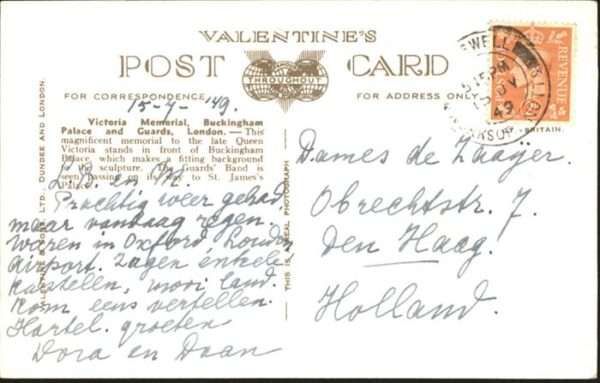 VALENTINE'S
POST CARD
THROUGHOUT THE WORLD
FOR CORRESPONDENCE
FOR ADDRESS ONLY
15-4-'49.
Victoria Memorial, Buckingham
Palace and Guards, London.—This
magnificent memorial to the late Queen
Victoria stands in front of Buckingham
Palace, which makes a fitting background
to the sculpture. The Guards' Band is
seen passing on its way to St. James's
Palace.
L.B. en M.
Prachtig weer gehad
maar vandaag regen.
Waren in Oxford, London
Airport. Zagen enkele
kastelen, mooi land.
Kom eens vertellen.
Hartel. groeten
Dora en Daan
VALENTINE & SONS LTD., DUNDEE AND LONDON.
THIS IS A REAL PHOTOGRAPH
REVENUE
49
BRITAIN.
Dames de Zaaijer.
Obrechtstr. 7.
Den Haag.
Holland.